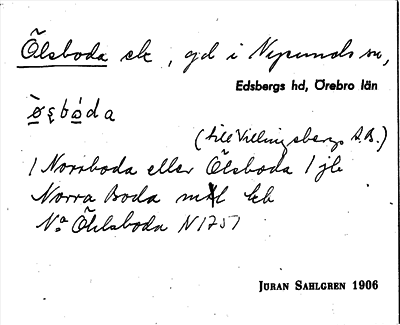 Ölsboda ek, gd i Nysunds sn,
Edsbergs hd, Örebro län
ø̀ʂbóda
(till Villingsbergs A.B.)
1 Norrboda eller Ölsboda 1 jb
Norra Boda mtl kb
Na Öhlsboda N 1757
JÖRAN SAHLGREN 1906